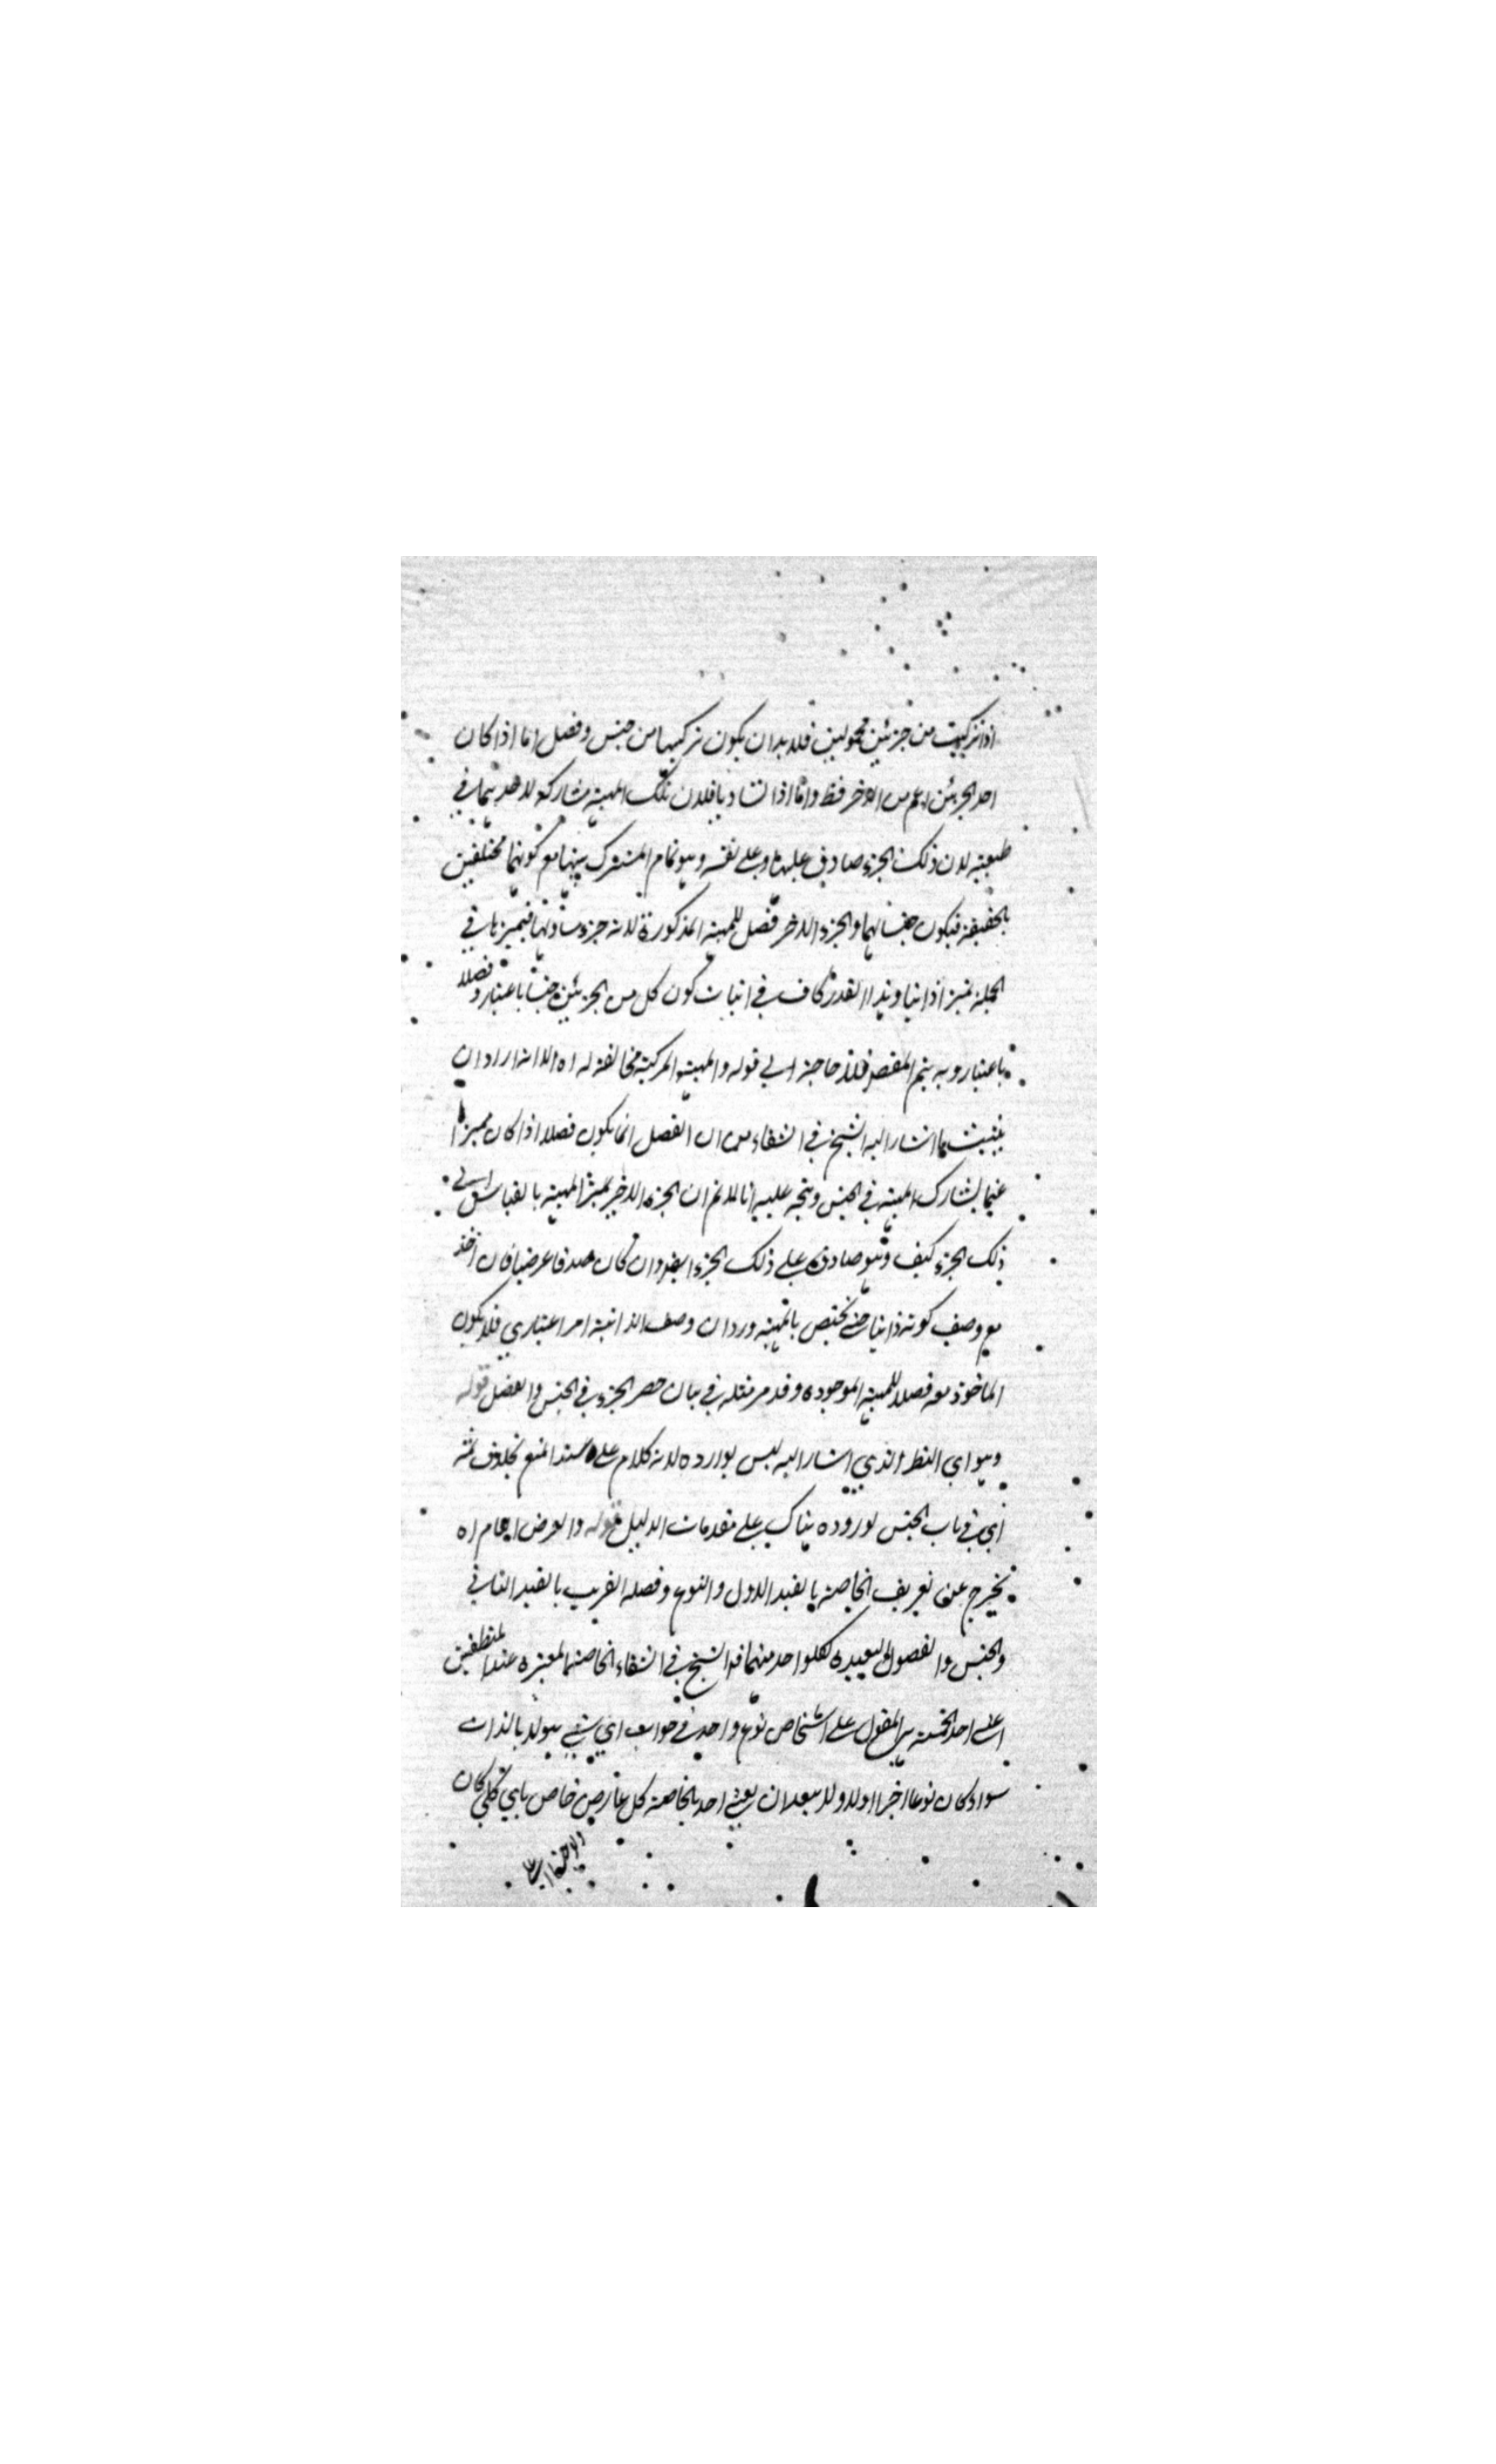 اذا تركبت من جزئين محمولين فلا بد ان يكون تركيبها من جنس وفصل اما اذا كان
احد الجزئين اعم من الاخر فظ واما اذا تساويا فلان تلك المهية مشاركة لاحديهما في
طبيعته لان ذلك الجزء صادق عليها وعلى نفسه وهو تمام المشترك بينهما مع كونهما مختلفين
بالحقيقة فيكون جنسا لهما والجزء الاخر فصل للمهية المذكورة لانه جزء مساو لها فيميزها في
الجملة تميزا ذاتيا وهذا القدر كاف في اثبات كون كل من الجزئين جنسا باعتبار وفصلا
باعتبار وبه يتم المقصد فلا حاجة الى قوله والمهية المركبة مخالفة له اه الا انه اراد ان
يثبت ما اشار اليه الشيخ في الشفاء من ان الفصل انما يكون فصلا اذا كان مميزا
عما يشارك المهية في الجنس ويتجه عليه انا لا نم ان الجزء الاخير يميز المهية بالقياس الى
ذلك الجزء كيف وهو صادق على ذلك الجزء ايضا وان كان صدقا عرضيا فان اخذ
مع وصف كونه ذاتيا حتى يختص بالمهية ورد ان وصف الذاتية امر اعتباري فلا يكون
الماخوذ معه فصلا للمهية الموجودة وقد مر مثله في بيان حصر الجزء في الجنس والفصل قوله
وهو اي النظر الذي اشار اليه ليس بوارد ه لانه كلام على سند المنع بخلاف ثمه
اي في باب الجنس لوروده هناك على مقدمات الدليل قوله والعرض العام اه
يخرج عن تعريف الخاصة بالقيد الاول والنوع وفصله القريب بالقيد الثاني
والجنس والفصول البعيدة لكل واحد منهما قال الشيخ في الشفاء الخاصة المعتبرة عند المنطقيين
اعني احد الخمسة هي المقول على اشخاص نوع واحد في جواب اي شيء هو لا بالذات
سواء كان نوعا اخيرا اولا ولا يبعد ان يعني احد بالخاصة كل عارض خاص باي كلي كان